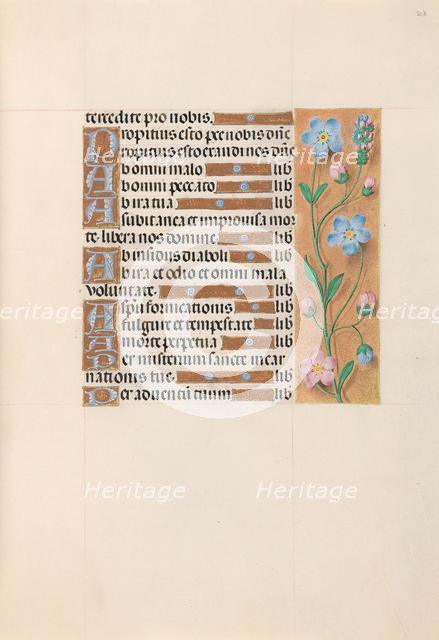 tercedite pro nobis.
Propitius esto p̱ce nobis dn̄e
Propitius esto exaudi nos dn̄e
Ab omni malo lib
Ab omni peccato lib
Ab ira tua lib
A subitanea et improvisa mor
te libera nos domine lib
Ab insidiis diaboli lib
Ab ira et odio et omni mala
voluntate. lib
A spū fornicationis lib
A fulgure et tempestate lib
A morte perpetua lib
Per misterium sancte incar
nationis tue. lib
Per adventū tuum lib
Heritage